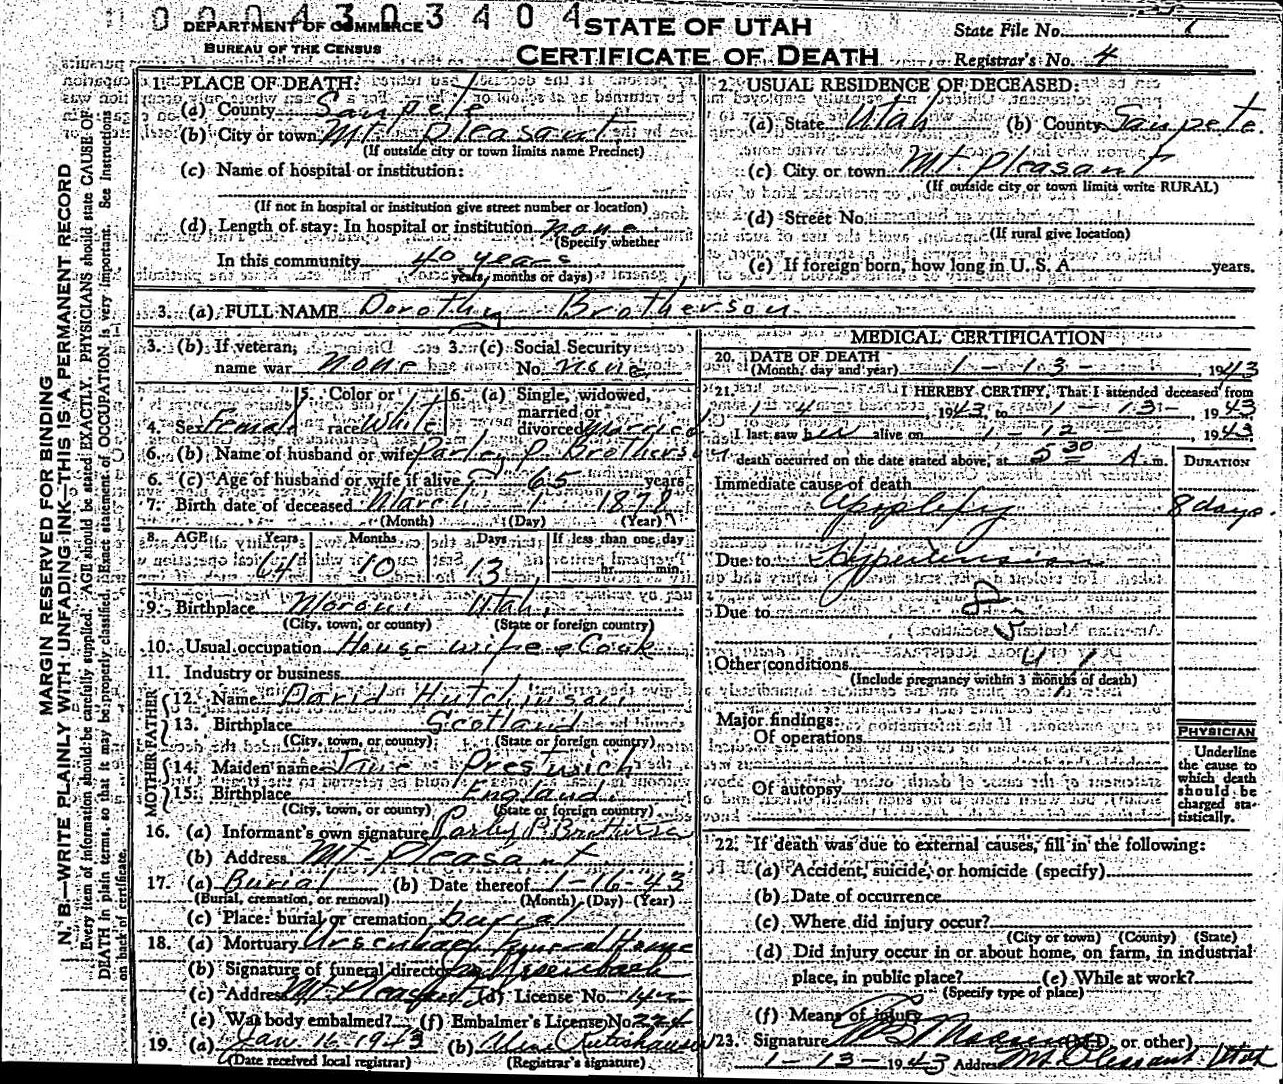 0004303404
DEPARTMENT OF COMMERCE
BUREAU OF THE CENSUS
STATE OF UTAH
CERTIFICATE OF DEATH
State File No.
Registrar's No. 4
MARGIN RESERVED FOR BINDING
N. B.—WRITE PLAINLY WITH UNFADING INK—THIS IS A PERMANENT RECORD
Every item of information should be carefully supplied. AGE should be stated EXACTLY. PHYSICIANS should state CAUSE OF
DEATH in plain terms, so that it may be properly classified. Exact statement of OCCUPATION is very important. See Instructions
on back of certificate.
1. PLACE OF DEATH:
(a) County Sanpete
(b) City or town Mt. Pleasant
(If outside city or town limits name Precinct)
(c) Name of hospital or institution:
(If not in hospital or institution give street number or location)
(d) Length of stay: In hospital or institution none
(Specify whether
In this community 40 years
years, months or days)
2. USUAL RESIDENCE OF DECEASED:
(a) State Utah (b) County Sanpete.
(c) City or town Mt. Pleasant
(If outside city or town limits write RURAL)
(d) Street No.
(If rural give location)
(e) If foreign born, how long in U. S. A. years.
3. (a) FULL NAME Dorothy Brotherson
3. (b) If veteran, name war none 3. (c) Social Security No. none
4. Sex Female 5. Color or race White 6. (a) Single, widowed, married or divorced Married
6. (b) Name of husband or wife Parley P. Brotherson
6. (c) Age of husband or wife if alive 65 years
7. Birth date of deceased March 1 1878
(Month) (Day) (Year)
8. AGE Years Months Days If less than one day
64 10 13 hr. min.
9. Birthplace Moroni Utah
(City, town, or county) (State or foreign country)
10. Usual occupation House wife & Cook
11. Industry or business
FATHER
12. Name David Hutchinson
13. Birthplace Scotland
(City, town, or county) (State or foreign country)
MOTHER
14. Maiden name Jane Prestwich
15. Birthplace England
(City, town, or county) (State or foreign country)
16. (a) Informant's own signature Parley P. Brotherson
(b) Address Mt. Pleasant
17. (a) Burial (b) Date thereof 1-16-43
(Burial, cremation, or removal) (Month) (Day) (Year)
(c) Place: burial or cremation burial
18. (a) Mortuary Ursenbach Funeral Home
(b) Signature of funeral director Ursenbach
(c) Address Mt. Pleasant (d) License No.
(e) Was body embalmed? (f) Embalmer's License No. 224
19. (a) Jan 16 1943 (b)
(Date received local registrar) (Registrar's signature)
MEDICAL CERTIFICATION
20. DATE OF DEATH
(Month, day and year) 1-13-, 1943
21. I HEREBY CERTIFY, That I attended deceased from
1-4, 1943, to 1-13-, 1943
I last saw her alive on 1-12-, 1943
death occurred on the date stated above, at 5 30 A. m.
DURATION
Immediate cause of death
Apoplexy 8 days.
Due to Hypertension
Due to
83
Other conditions 4 1
(Include pregnancy within 3 months of death)
Major findings:
Of operations
Of autopsy
PHYSICIAN
Underline
the cause to
which death
should be
charged sta-
tistically.
22. If death was due to external causes, fill in the following:
(a) Accident, suicide, or homicide (specify)
(b) Date of occurrence
(c) Where did injury occur?
(City or town) (County) (State)
(d) Did injury occur in or about home, on farm, in industrial
place, in public place? (e) While at work?
(Specify type of place)
(f) Means of injury
23. Signature (M.D. or other)
1-13-1943 Address Mt. Pleasant Utah